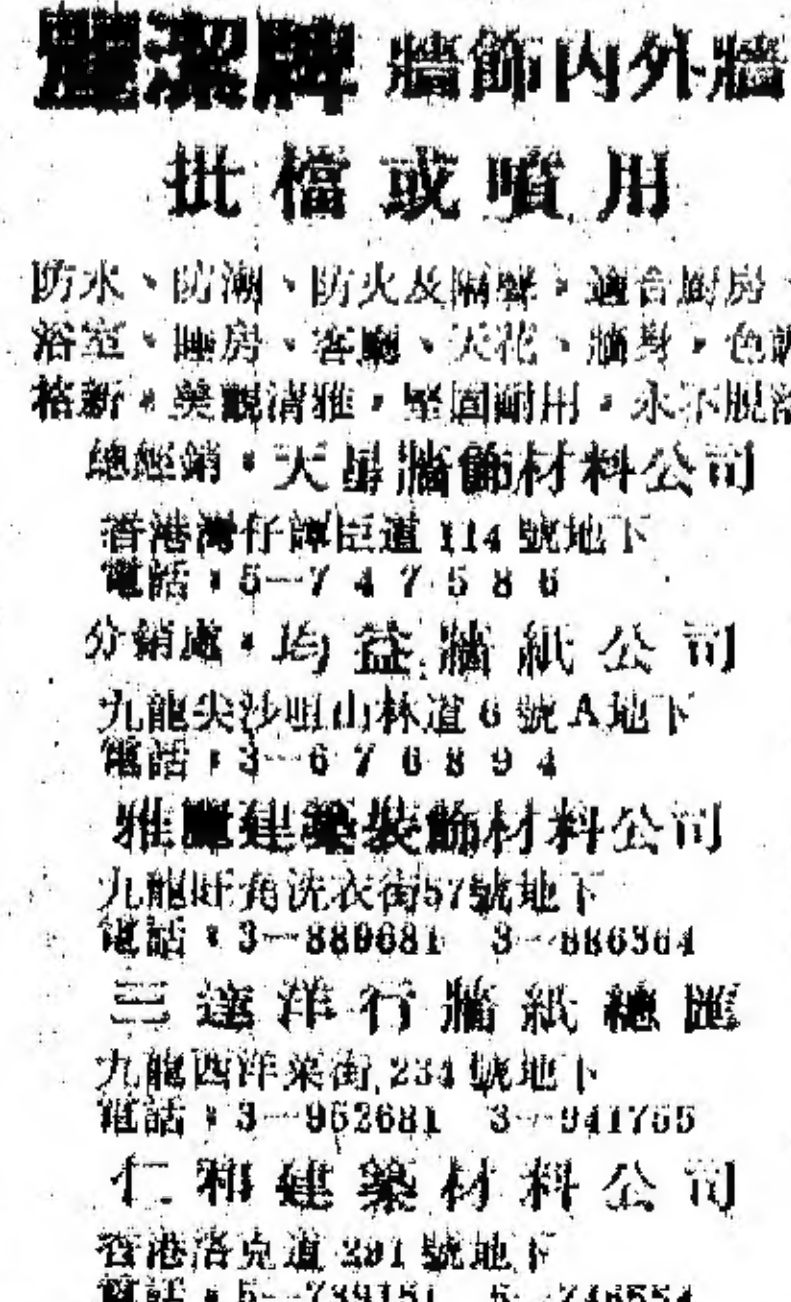 麗潔牌 牆飾內外牆
批檔或噴用
防水、防潮、防火及隔聲，適合廚房、
浴室、睡房、客廳、天花、牆身，色調
格新，美觀清雅，堅固耐用，永不脫落
總經銷：天星牆飾材料公司
香港灣仔譚臣道114號地下
電話：5—747586
分銷處：均益牆紙公司
九龍尖沙咀山林道6號A地下
電話：3—676894
雅麗建築裝飾材料公司
九龍旺角洗衣街57號地下
電話：3—889681 3—886364
三達洋行牆紙總匯
九龍西洋菜街234號地下
電話：3—962681 3—941765
仁和建築材料公司
香港洛克道291號地下
電話：5—739151 5—746554